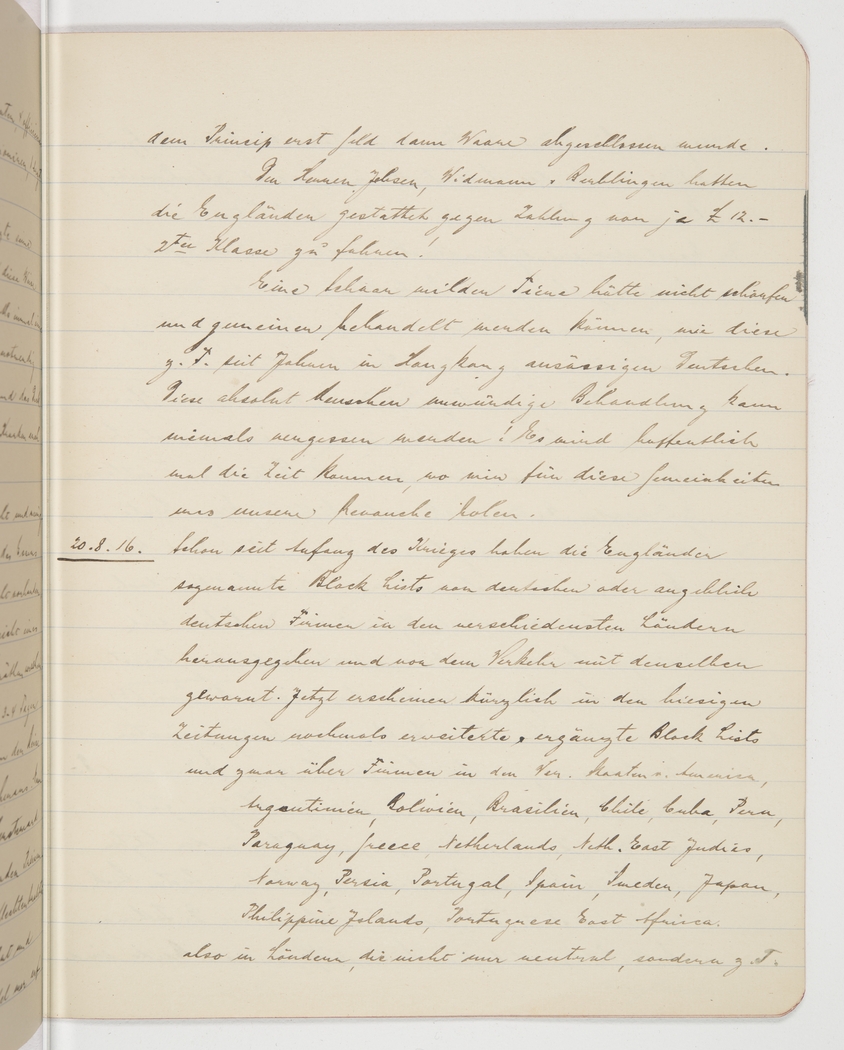 dem Prinzip erst Geld dann Waare abgeschlossen wurde.
Den Herren Jebsen, Widmann & Berblinger hatten
die Engländer gestattet gegen Zahlung von je £ 12.-
2ter Klasse zu fahren!
Eine Schaar wilder Tiere hätte nicht schärfer
und gemeiner behandelt werden können, wie diese
z. T. seit Jahren in Hongkong ansässigen Deutschen.
Diese absolut Menschen unwürdige Behandlung kann
niemals vergessen werden! Es wird hoffentlich
mal die Zeit kommen, wo wir für diese Gemeinheiten
uns unsere Revanche holen.
20.8.16. Schon seit Anfang des Krieges haben die Engländer
sogenannte Black Lists von deutschen oder angeblich
deutschen Firmen in den verschiedensten Ländern
herausgegeben und vor dem Verkehr mit denselben
gewarnt. Jetzt erscheinen kürzlich in den hiesigen
Zeitungen nochmals erweiterte & ergänzte Black Lists
und zwar über Firmen in den Ver. Staaten v. America,
Argentinien, Bolivien, Brasilien, Chile, Cuba, Peru,
Paraguay, Greece, Netherlands, Neth. East Indies,
Norway, Persia, Portugal, Spain, Sweden, Japan,
Philippine Islands, Portuguese East Africa.
also in Ländern, die nicht nur neutral, sondern z. T.